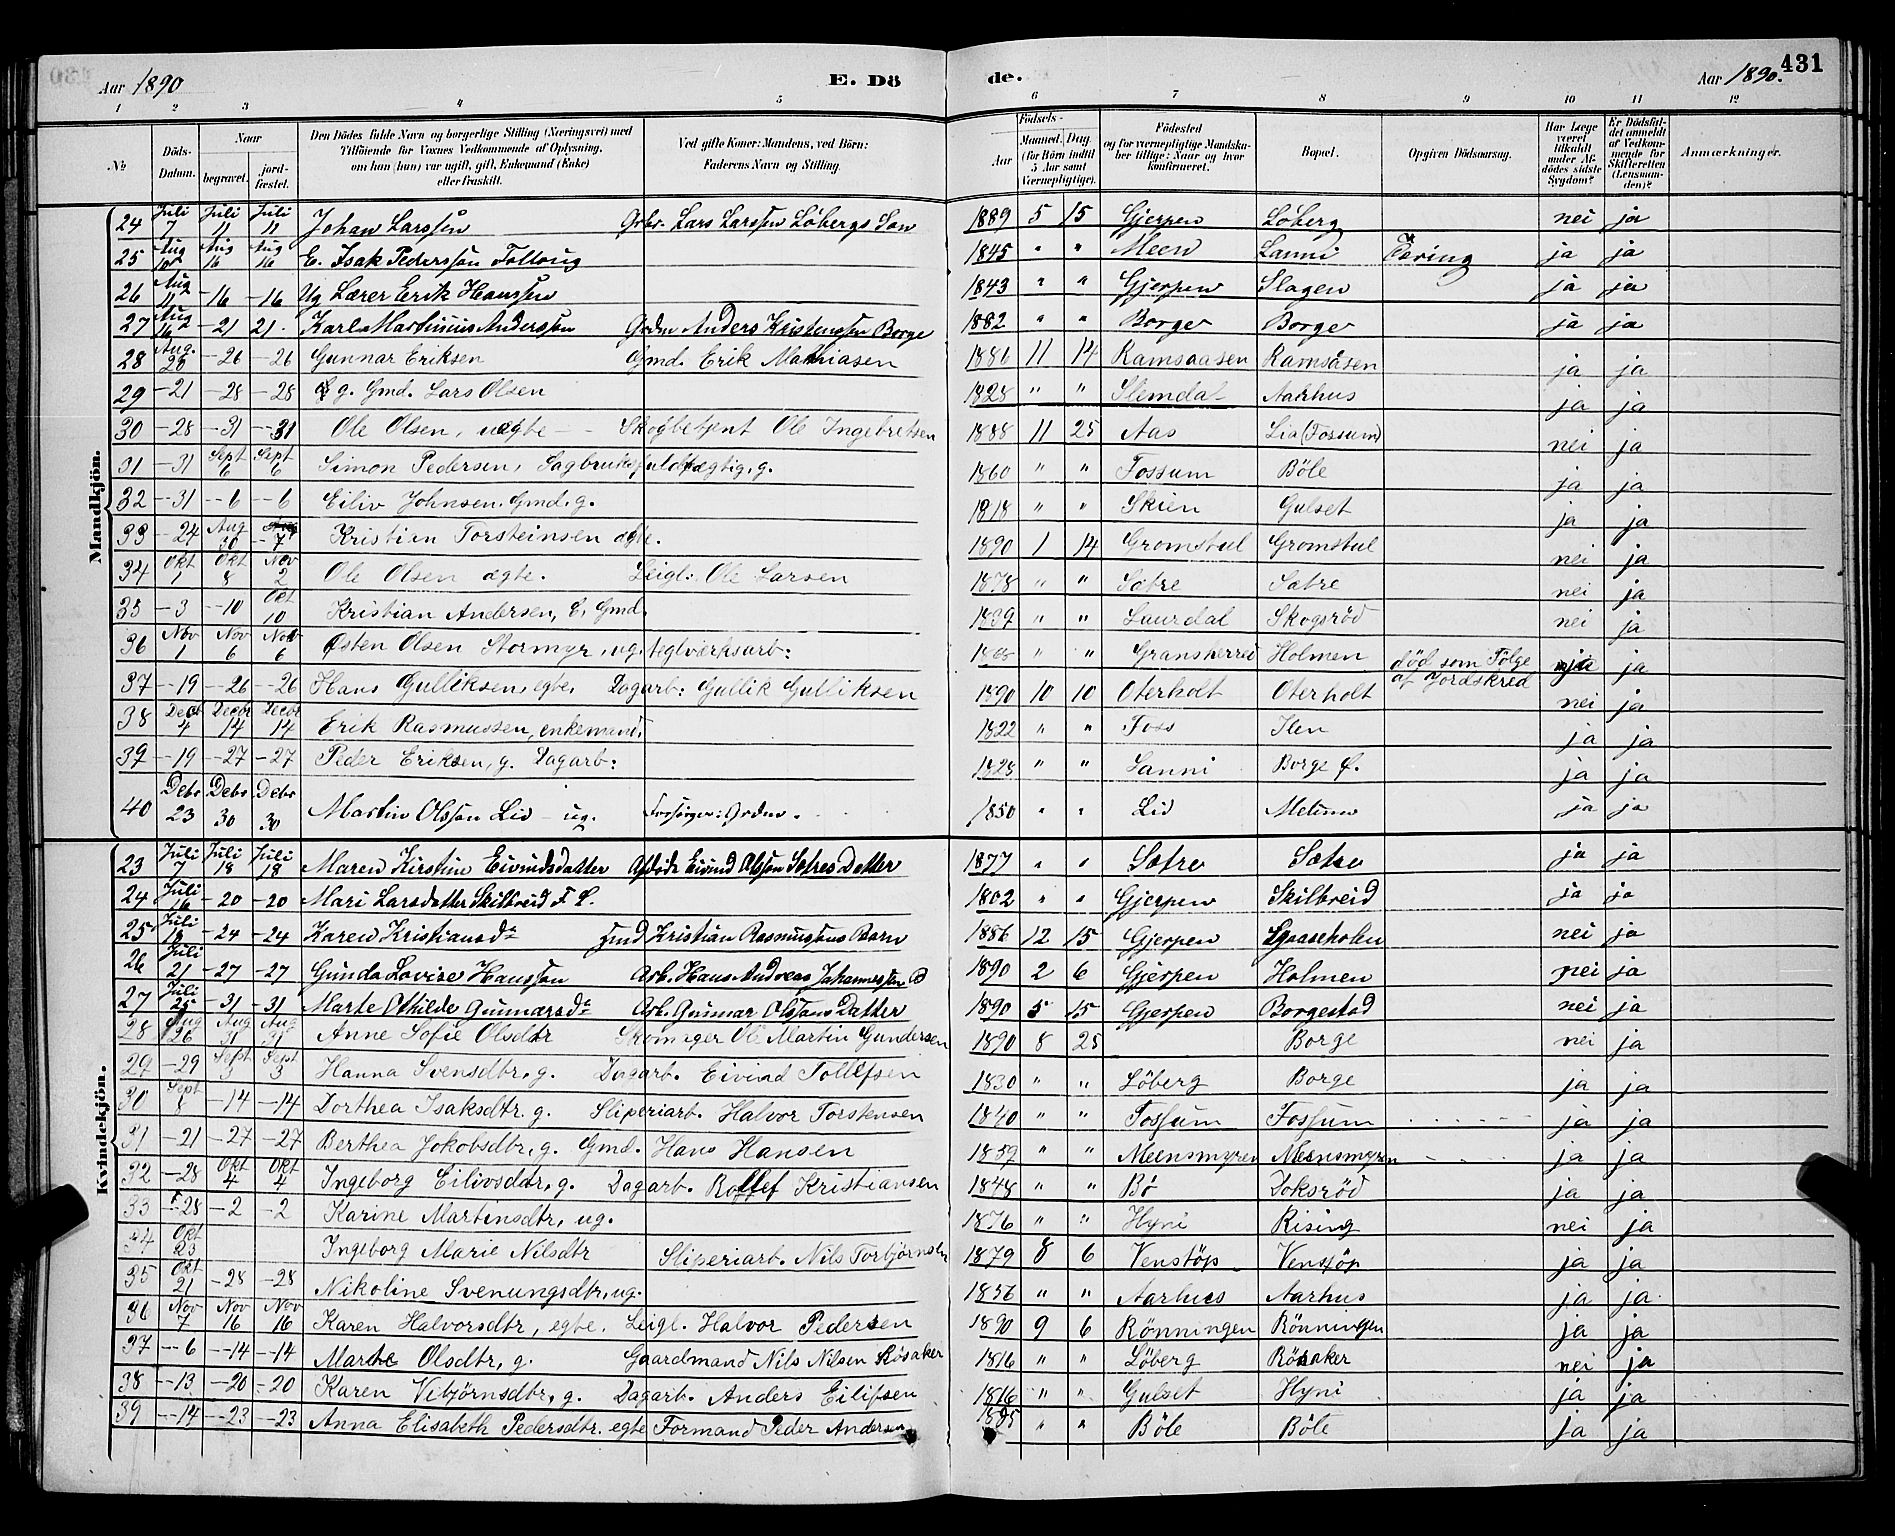 Aar 1890 E. Dö de. Aar 1890. 431
1 2 3 4 5 6 7 8 9 10 11 12
№ Döds-Datum. Naar begravet. jord-fæstet. Den Dödes fulde Navn og borgerlige Stilling (Næringsvei) med Tilföiende for Voxnes Vedkommende af Oplysning, om han (hun) var ugift, gift, Enkemand (Enke) eller fraskilt. Ved gifte Koner: Mandens, ved Börn: Faderens Navn og Stilling. Födsels- Aar Maaned. Dag. (for Börn indtil 5 Aar samt Værnepligtige). Födested og for værnepligtige Mandskaber tillige: Naar og hvor konfirmeret. Bopæl. Opgiven Dödsaarsag. Har Læge været tilkaldt under Afdödes sidste Sygdom? Er Dödsfaldet anmeldt af Vedkommende for Skifteretten (Lensmanden)? Anmærkninger.
Mandkjön.
24 Juli 7 Juli 11 Juli 11 Johan Larssen Grbr. Lars Larssen Löbergs Sön 1889 5 15 Gjerpen Löberg nei ja
25 Aug 10 Aug 16 Aug 16 E. Isak Pederssøn 1845 " " Meen Lanni Tæring ja ja
26 Aug 11 -16 -16 Ug Lærer Erik Hanssen 1843 " " Gjerpen Slagen ja ja
27 Aug 16 -21 21. Karl Martinius Anderssøn Grdm Anders Kristenssen Borge 1882 " " Borge Borge ja ja
28 Aug. 20 -26 -26 Gunnar Eriksen Gmd. Erik Mathiasen 1886 11 14 Ramsaasen Ramsåsen ja ja
29 -21 -28 -28 g. Gmd. Lars Olsen 1828 " " Slemdal Aarhus ja ja
30 -28 -31 -31 Ole Olsen, uegte - Skogbetjent Ole Ingebretsen 1888 11 25 Aas Lia (Fossum) nei ja
31 -31 Sept 6 Sept 6 Simon Pedersen, g. 1860 " " Fossum Böle ja ja
32 -31 -6 -6 Eiliv Johnsen. Gmd. g. 1818 " " Skien Gulset ja ja
33 -24 Aug 30 -7 Kristian Torsteinsen ægte. 1890 1 14 Gromstul Gromstul nei ja
34 Okt 1 Okt 8 Nov 2 Ole Olsen ægte. Leigl: Ole Larsen 1878 " " Sætre Sætre nei ja
35 -3 -10 Okt 10 Kristian Andersen, E. Gmd. 1839 " " Laurdal Skogsröd nei ja
36 Nov 1 Nov 6 Nov 6 Østen Olsen Stormyr, ug. teglværksarb: " " Gransherred Holmen död som Fölge af Jordskred ja ja
37 -19 -26 -26 Hans Gulliksen, egte, Dagarb: Gullik Gulliksen 1890 10 10 Oterholt Oterholt nei ja
38 Decbr 4 Decbr 14 Decbr 14 Erik Rasmussen, enkemand, 1822 " " Foss Ilen ja ja
39 -19 -27 -27 Peder Eriksen, g. Dagarb: 1828 " " Lanni Borge Ø. ja ja
40 Debr 23 Debr 30 Debr 30 Martin Olssøn Lid - ug. Forsörges: Grdm. 1850 " " Lid Melum ja ja
Kvindekjön.
23 Juli 7 Juli 18 Juli 18 Maren Kirstine Eivindsdatter Afdöde Eivind Olssøn Sætres Datter 1877 " " Sætre Sætre ja ja
24 Juli 16 -20 -20 Mari Larsdatter Skilbreid F. L. 1802 " " Gjerpen Skilbreid ja ja
25 Juli 18 -24 -24 Karen Kristiansd. Kristian Rasmussøns Barn 1886 12 15 Gjerpen nei ja
26 Juli 21 -27 -27 Gunda Lovise Hanssøn Arb. Hans Andreas Johannessen D 1890 2 6 Gjerpen Holmen nei ja
27 Juli 25 -31 -31 Marte Othilde Gunnarsd. Arb. Gunnar Olssøns Datter 1890 5 15 Gjerpen Borgestad nei ja
28 Aug 26 Aug 31 Aug 31 Anne Sofie Olsdtr Skomager Ole Martin Gundersen 1890 8 25 Borge nei ja
29 -29 Sept 3 Sept 3 Hanna Svensdtr, g. Dagarb. Eivind Tollefsen 1830 " " Löberg Borge ja ja
30 Sept 8 -14 -14 Dorthea Isaksdtr, g. Sliperiarb. Halvor Torstensen 1840 " " Fossum Fossum ja ja
31 -21 -27 -27 Berthea Jokobsdtr, g. Gmd. Hans Hansen 1859 " " Meensmyren Meensmyren ja ja
32 -28 Okt 4 Okt 4 Ingeborg Eilivsdtr, g. Dagarb. Rollef Kristiansen 1848 " " Bö Doksröd ja ja
33 -28 -2 -2 Karine Martinsdtr, ug. 1876 " " Hyni Rising nei ja
34 Okt 23 Ingeborg Marie Nilsdtr Sliperiarb. Nils Torbjörnsen 1879 8 6 Venstöp Venstöp ja ja
35 Okt 21 -28 -28 Nikoline Svenungsdtr, ug. 1856 " " Aarhus Aarhus ja ja
36 Nov 7 Nov 16 Nov 16 Karen Halvorsdtr, egte. Leigl. Halvor Pedersen 1890 9 6 Rönningen Rönningen ja ja
37 -6 -14 -14 Marte Olsdtr, g. Gaardmand Nils Nilsen Rösaker 1816 " " Löberg Rösaker nei ja
38 -13 -20 -20 Karen Vebjörnsdtr, g. Dagarb. Anders Eilifsen 1816 " " Gulset Hyni ja ja
39 -14 -23 -23 Anna Elisabeth Pedersdtr. egte Formand Peder Andersen 1885 " " Böle Böle ja ja